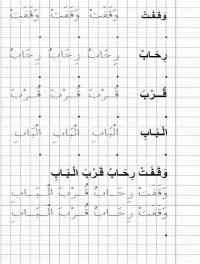 وَقَفَتْ وَقَفَتْ وَقَفَتْ وَقَفَتْ
رِحَابُ رِحَابُ رِحَابُ رِحَابُ
قُـرْبَ قُـرْبَ قُـرْبَ قُـرْبَ
الْبَابِ الْبَابِ الْبَابِ الْبَابِ
وَقَفَتْ رِحَابُ قُرْبَ الْبَابِ
وَقَفَتْ رِحَابُ قُرْبَ الْبَابِ
وَقَفَتْ رِحَابُ قُرْبَ الْبَابِ